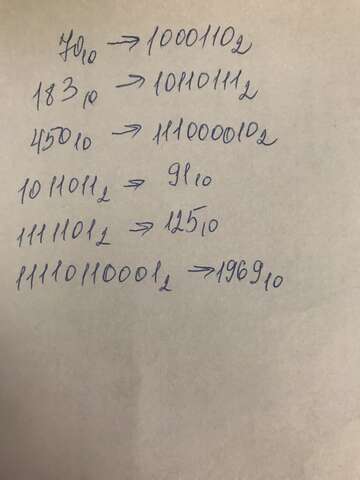 70₁₀ → 1000110₂
183₁₀ → 10110111₂
450₁₀ → 111000010₂
1011011₂ → 91₁₀
1111101₂ → 125₁₀
11110110001₂ → 1969₁₀